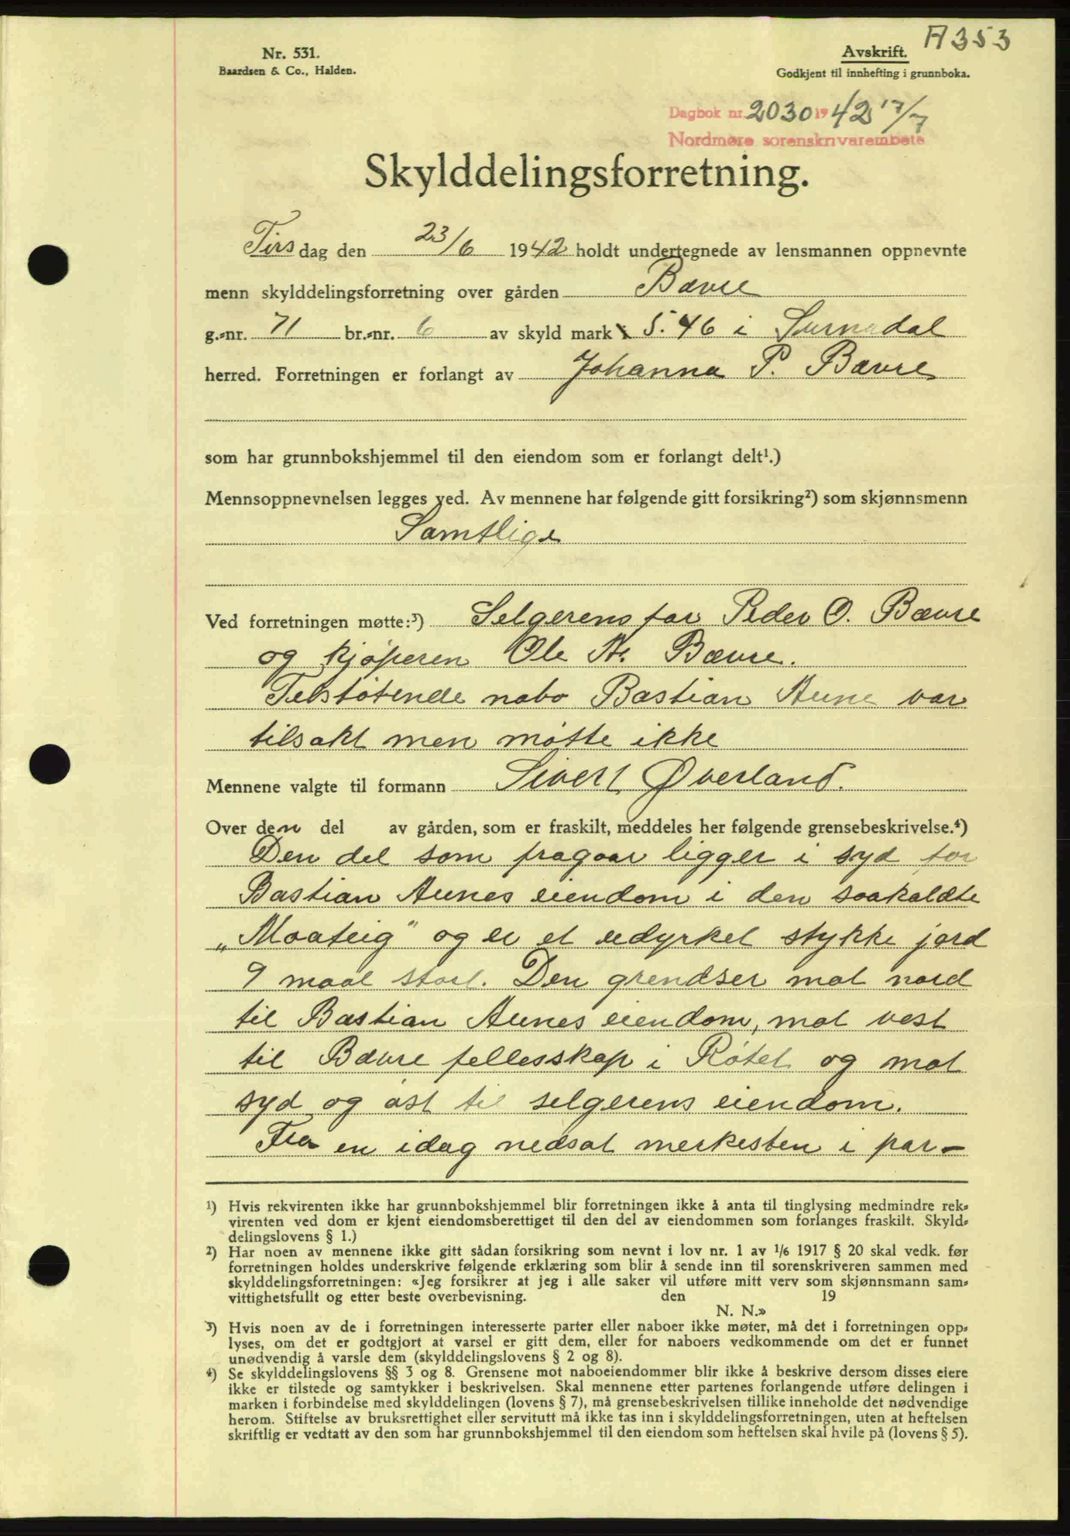 A353
Nr. 531.
Baardsen & Co., Halden.
Avskrift.
Godkjent til innhefting i grunnboka.
Dagbok nr. 2030 1942 17/7
Nordmøre sorenskrivarembete
Skylddelingsforretning.
Tirsdag den 23/6 1942 holdt undertegnede av lensmannen oppnevnte
menn skylddelingsforretning over gården Bævre
g.-nr. 71 br.-nr. 6 av skyld mark 5.46 i Surnadal
herred. Forretningen er forlangt av Johanna P. Bævre
som har grunnbokshjemmel til den eiendom som er forlangt delt¹.)
Mennsoppnevnelsen legges ved. Av mennene har følgende gitt forsikring²) som skjønnsmenn
Samtlige
Ved forretningen møtte:³) Selgerens far Peder O. Bævre
og kjøperen Ole Kr. Bævre.
Tilstøtende nabo Bastian Aune var
tilsakt men møtte ikke
Mennene valgte til formann Sivert Øverland.
Over den del av gården, som er fraskilt, meddeles her følgende grensebeskrivelse.⁴)
Den del som fragaar ligger i syd for
Bastian Aunes eiendom i den saakaldte
„Moateig" og er et udyrket stykke jord
9 maal stort. Den grendser mot nord
til Bastian Aunes eiendom, mot vest
til Bævre fellesskap i Røtet og mot
syd og øst til selgerens eiendom.
Fra en idag nedsat merkesten i par-
¹) Hvis rekvirenten ikke har grunnbokshjemmel blir forretningen ikke å anta til tinglysing medmindre rek-
virenten ved dom er kjent eiendomsberettiget til den del av eiendommen som forlanges fraskilt. Skyld-
delingslovens § 1.)
²) Har noen av mennene ikke gitt sådan forsikring som nevnt i lov nr. 1 av 1/6 1917 § 20 skal vedk. før
forretningen holdes underskrive følgende erklæring som blir å sende inn til sorenskriveren sammen med
skylddelingsforretningen: «Jeg forsikrer at jeg i alle saker vil utføre mitt verv som skjønnsmann sam-
vittighetsfullt og etter beste overbevisning. den 19
N. N.»
³) Hvis noen av de i forretningen interesserte parter eller naboer ikke møter, må det i forretningen opp-
lyses, om det er godtgjort at varsel er gitt dem, eller for naboers vedkommende om det er funnet
unødvendig å varsle dem (skylddelingslovens § 2 og 8).
⁴) Se skylddelingslovens §§ 3 og 8. Grensene mot naboeiendommer blir ikke å beskrive dersom disses eiere
ikke er tilstede og samtykker i beskrivelsen. Skal mennene etter partenes forlangende utføre delingen i
marken i forbindelse med skylddelingen (lovens § 7), må grensebeskrivelsen tillike inneholde det nødvendige
herom. Stiftelse av bruksrettighet eller servitutt må ikke tas inn i skylddelingsforretningen, uten at heftelsen
skriftlig er vedtatt av den som har grunnbokshjemmel til den eiendom som heftelsen skal hvile på (lovens § 5).